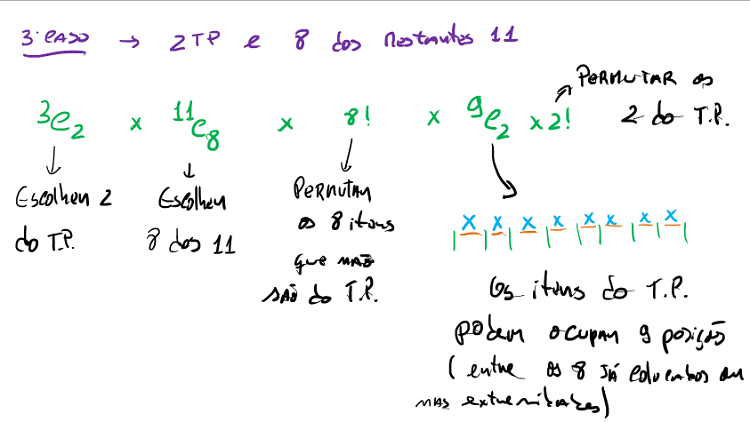 3º CASO → 2 TP e 8 dos Restantes 11
³C₂ x ¹¹C₈ x 8! x ⁹C₂ x 2!
PERMUTAR os
2 do T.P.
Escolher 2
do T.P.
Escolher
8 dos 11
PERMUTAR
os 8 itens
que NÃO
SÃO do T.P.
x x x x x x x x
Os itens do T.P.
podem ocupar 9 posição
(entre os 8 JÁ colocados ou
nas extremidades)